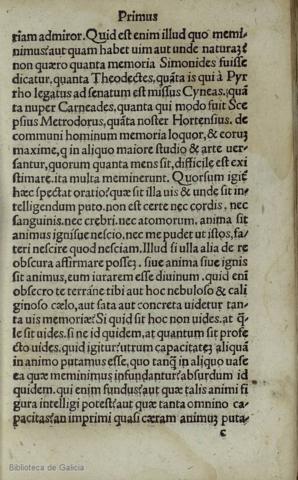 Primus
riam admiror. Quid est enim illud quo memi-
nimus? aut quam habet uim aut unde naturaȝ?
non quæro quanta memoria Simonides fuisse
dicatur, quanta Theodectes, quãta is qui à Pyr
rho legatus ad senatum est missus Cyneas, quã
ta nuper Carneades, quanta qui modo fuit Sce
psius Metrodorus, quãta noster Hortensius. de
communi hominum memoria loquor, & eoruȝ
maxime, q in aliquo maiore studio & arte uer-
santur, quorum quanta mens sit, difficile est exi
stimare. ita multa meminerunt. Quorsum igiť
hæc spectat oratio? quæ sit illa uis & unde sit in-
telligendum puto. non est certe nec cordis, nec
sanguinis, nec crebri, nec atomorum. anima sit
animus ignisue nescio, nec me pudet ut istos, fa-
teri nescire quod nesciam. Illud si ulla alia de re
obscura affirmare posseȝ. siue anima siue ignis
sit animus, eum iurarem esse diuinum. quid eni
obsecro te terrãne tibi aut hoc nebuloso & cali
ginoso cælo, aut sata aut concreta uidetur tan-
ta uis memoriæ? Si quid sit hoc non uides. at q̃
le sit uides. si ne id quidem, at quantum sit profe
cto uides. quid igitur? utrum capacitateȝ aliquã
in animo putamus esse, quo tanq̃ in aliquo uase
ea quæ meminimus infundantur? absurdum id
quidem. qui enim fundus? aut quæ talis animi fi
gura intelligi potest? aut quæ tanta omnino ca-
pacitas? an imprimi quasi cæram animuȝ puta-
c
Biblioteca de Galicia